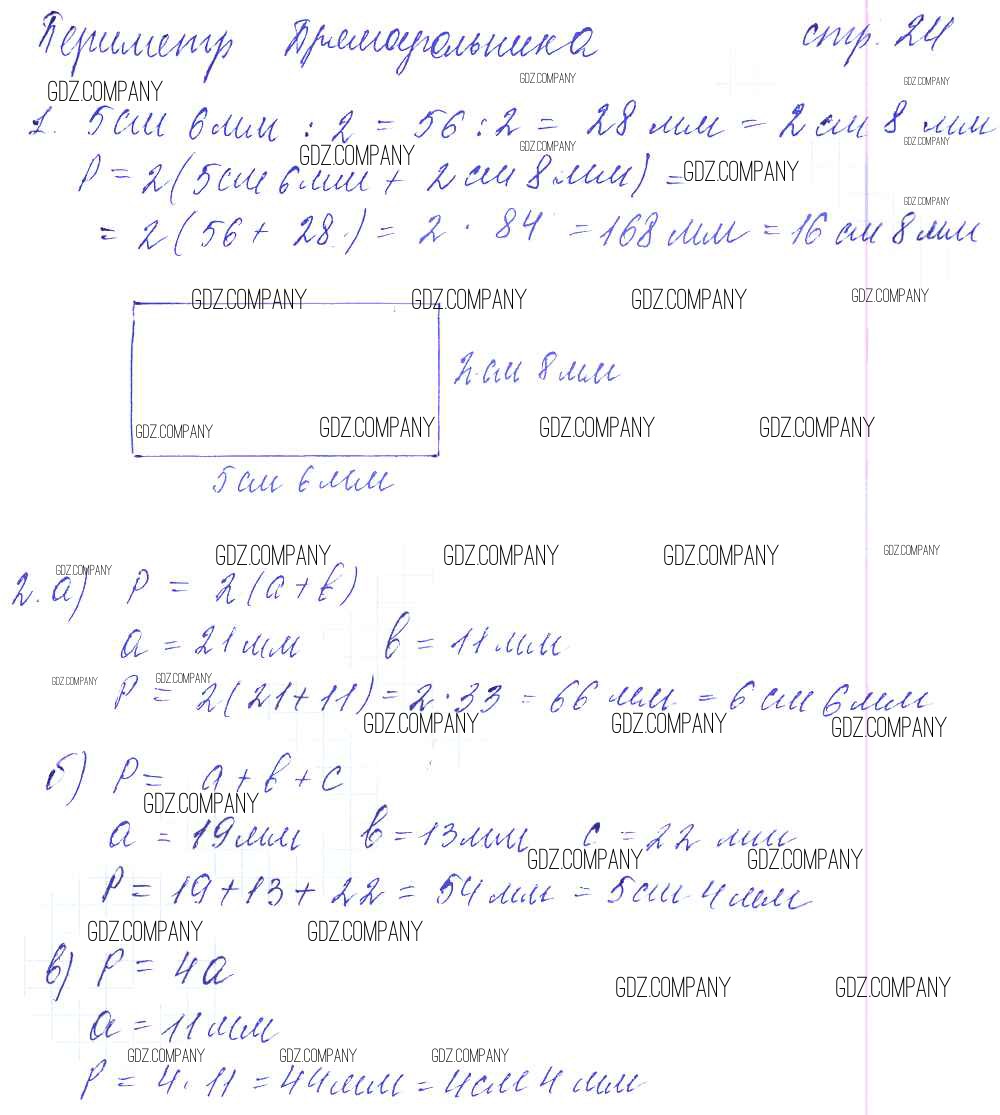 Периметр Прямоугольника стр. 24
GDZ.COMPANY GDZ.COMPANY GDZ.COMPANY
1. 5 см 6 мм : 2 = 56 : 2 = 28 мм = 2 см 8 мм
GDZ.COMPANY GDZ.COMPANY GDZ.COMPANY
P = 2(5 см 6 мм + 2 см 8 мм) =
GDZ.COMPANY GDZ.COMPANY
= 2(56 + 28) = 2 · 84 = 168 мм = 16 см 8 мм
GDZ.COMPANY GDZ.COMPANY GDZ.COMPANY GDZ.COMPANY
2 см 8 мм
GDZ.COMPANY GDZ.COMPANY GDZ.COMPANY GDZ.COMPANY
5 см 6 мм
GDZ.COMPANY GDZ.COMPANY GDZ.COMPANY GDZ.COMPANY
GDZ.COMPANY
2. а) P = 2(a + b)
a = 21 мм b = 11 мм
GDZ.COMPANY GDZ.COMPANY
P = 2(21 + 11) = 2 · 33 = 66 мм = 6 см 6 мм
GDZ.COMPANY GDZ.COMPANY GDZ.COMPANY
б) P = a + b + c
GDZ.COMPANY
a = 19 мм b = 13 мм c = 22 мм
GDZ.COMPANY GDZ.COMPANY
P = 19 + 13 + 22 = 54 мм = 5 см 4 мм
GDZ.COMPANY GDZ.COMPANY
в) P = 4a
GDZ.COMPANY GDZ.COMPANY
a = 11 мм
GDZ.COMPANY GDZ.COMPANY GDZ.COMPANY
P = 4 · 11 = 44 мм = 4 см 4 мм